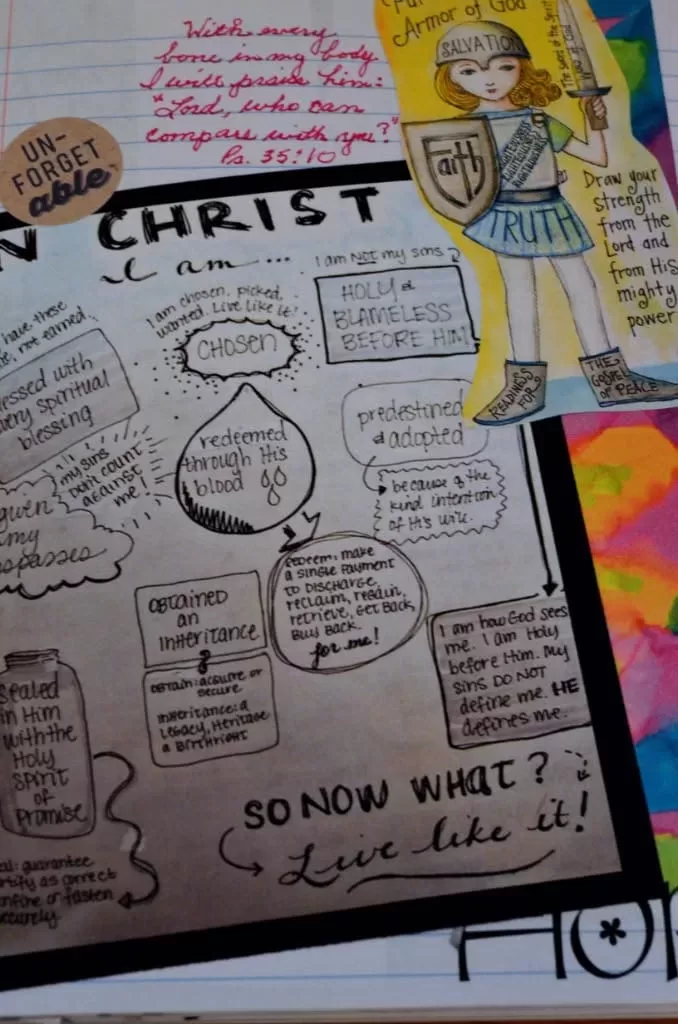 With every
bone in my body
I will praise him:
"Lord, who can
compare with you?"
Ps. 35:10
UN-
FORGET
able
Armor of God
SALVATION
The Sword of the Spirit
Faith
RIGHTEOUSNESS
TRUTH
Draw your
strength
from the
Lord and
from His
mighty
power
READINESS
FOR
THE
GOSPEL
OF PEACE
N CHRIST
I am...
I am NOT my sins
HOLY &
BLAMELESS
BEFORE HIM
I am chosen, picked,
wanted. Live like it!
CHOSEN
have these
not earned
essed with
very spiritual
blessing
my sins
DON'T COUNT
AGAINST
me!
given
my
spasses
redeemed
through His
blood
predestined
& adopted
because of the
kind intention
of His will.
REDEEM: make
a single payment
to discharge,
reclaim, regain,
retrieve, get back,
buy back.
for me!
OBTAINED
an
INHERITANCE
OBTAIN: acquire or
secure
Inheritance: a
Legacy, Heritage
a Birthright
I am how God sees
me. I am Holy
before Him. My
sins DO NOT
define me. HE
defines me.
Sealed
in Him
with the
Holy
Spirit
of
Promise
al: guarantee
rtify as correct
onfine or fasten
securely
SO NOW WHAT?
Live like it!
HO